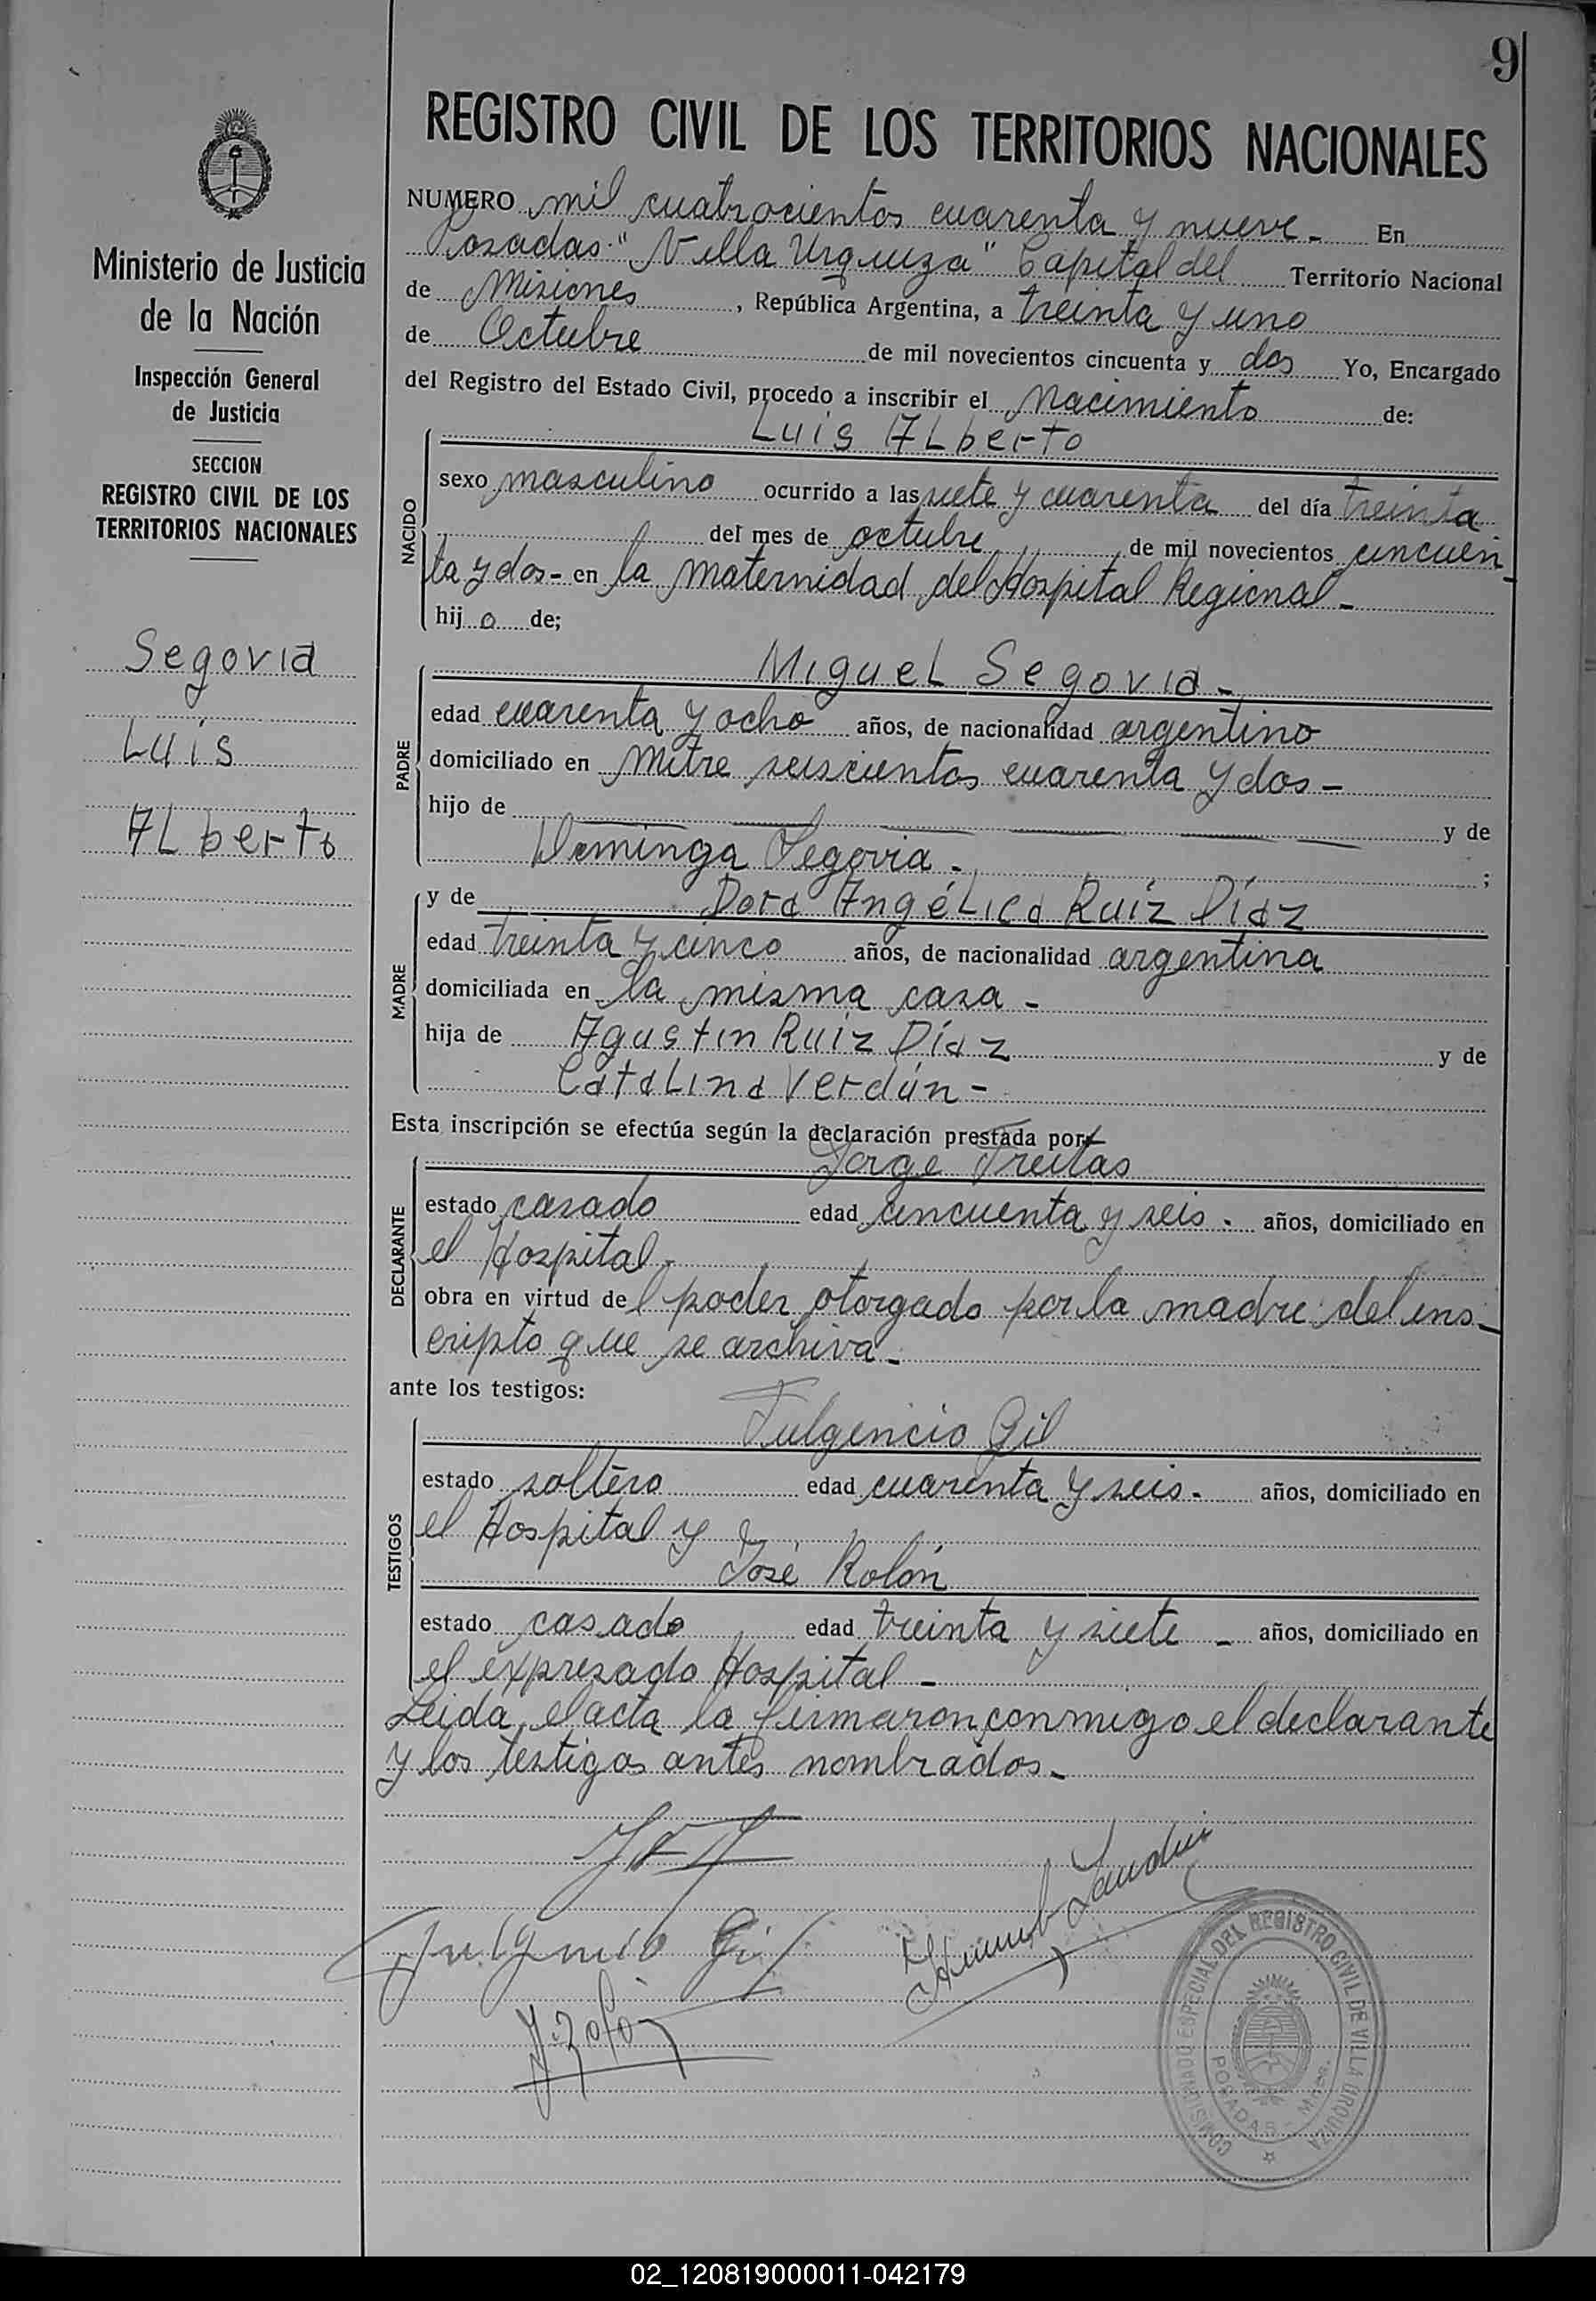 9
REGISTRO CIVIL DE LOS TERRITORIOS NACIONALES
Ministerio de Justicia
de la Nación
Inspección General
de Justicia
SECCION
REGISTRO CIVIL DE LOS
TERRITORIOS NACIONALES
Segovia
Luis
Alberto
NUMERO mil cuatrocientos cuarenta y nueve - En
Posadas "Villa Urquiza" Capital del Territorio Nacional
de Misiones, República Argentina, a treinta y uno
de Octubre de mil novecientos cincuenta y dos Yo, Encargado
del Registro del Estado Civil, procedo a inscribir el nacimiento de:
NACIDO
Luis Alberto
sexo masculino ocurrido a las siete y cuarenta del día treinta
del mes de octubre, de mil novecientos cincuen
ta y dos - en la maternidad del Hospital Regional -
hijo de;
PADRE
Miguel Segovia -
edad cuarenta y ocho años, de nacionalidad argentino
domiciliado en Mitre seiscientos cuarenta y dos -
hijo de y de
Dominga Segovia - ;
MADRE
y de Dora Angélica Ruíz Díaz
edad treinta y cinco años, de nacionalidad argentina
domiciliada en la misma casa -
hija de Agustin Ruiz Díaz y de
Catalina Verdún -
Esta inscripción se efectúa según la declaración prestada por
DECLARANTE
Jorge Freitas
estado casado edad cincuenta y seis - años, domiciliado en
el Hospital -
obra en virtud del poder otorgado por la madre del ins-
cripto que se archiva -
ante los testigos:
TESTIGOS
Fulgencio Gil
estado soltero edad cuarenta y seis - años, domiciliado en
el Hospital y
José Rolón
estado casado edad treinta y siete - años, domiciliado en
el expresado Hospital -
Leida el acta la firmaron conmigo el declarante
y los testigos antes nombrados -
Fulgencio Gil
J. Rolón
COMISIONADO ESPECIAL DEL REGISTRO CIVIL DE VILLA URQUIZA
POSADAS - Mnes.
02_120819000011-042179